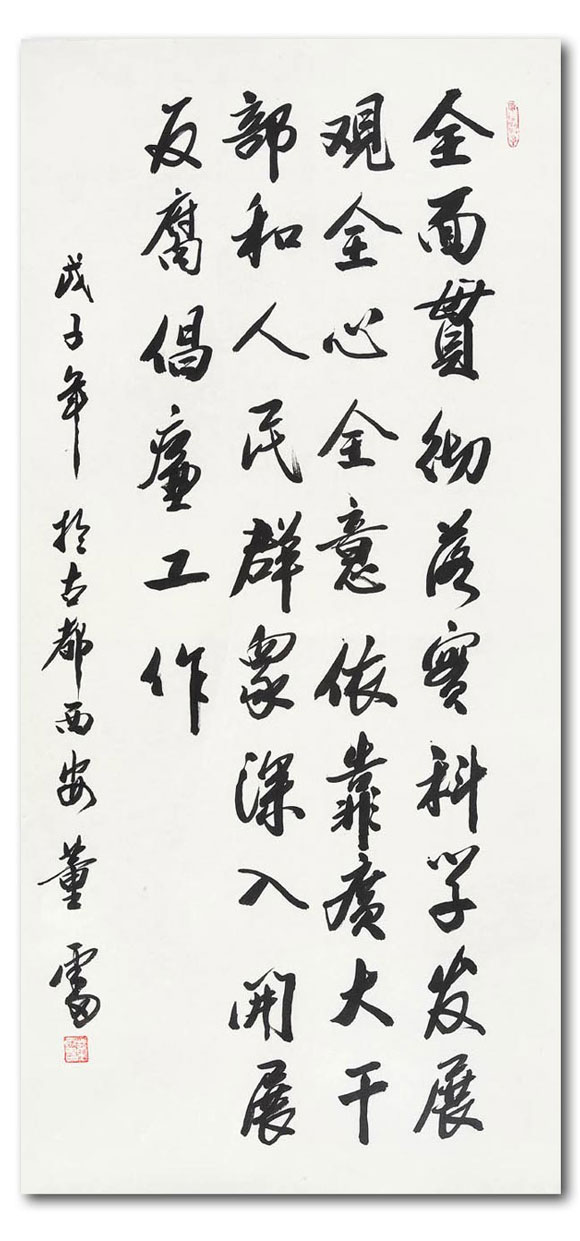 全面貫彻落實科学发展
观全心全意依靠廣大干
部和人民群衆深入開展
反腐倡廉工作
戊子年於古都西安董雷